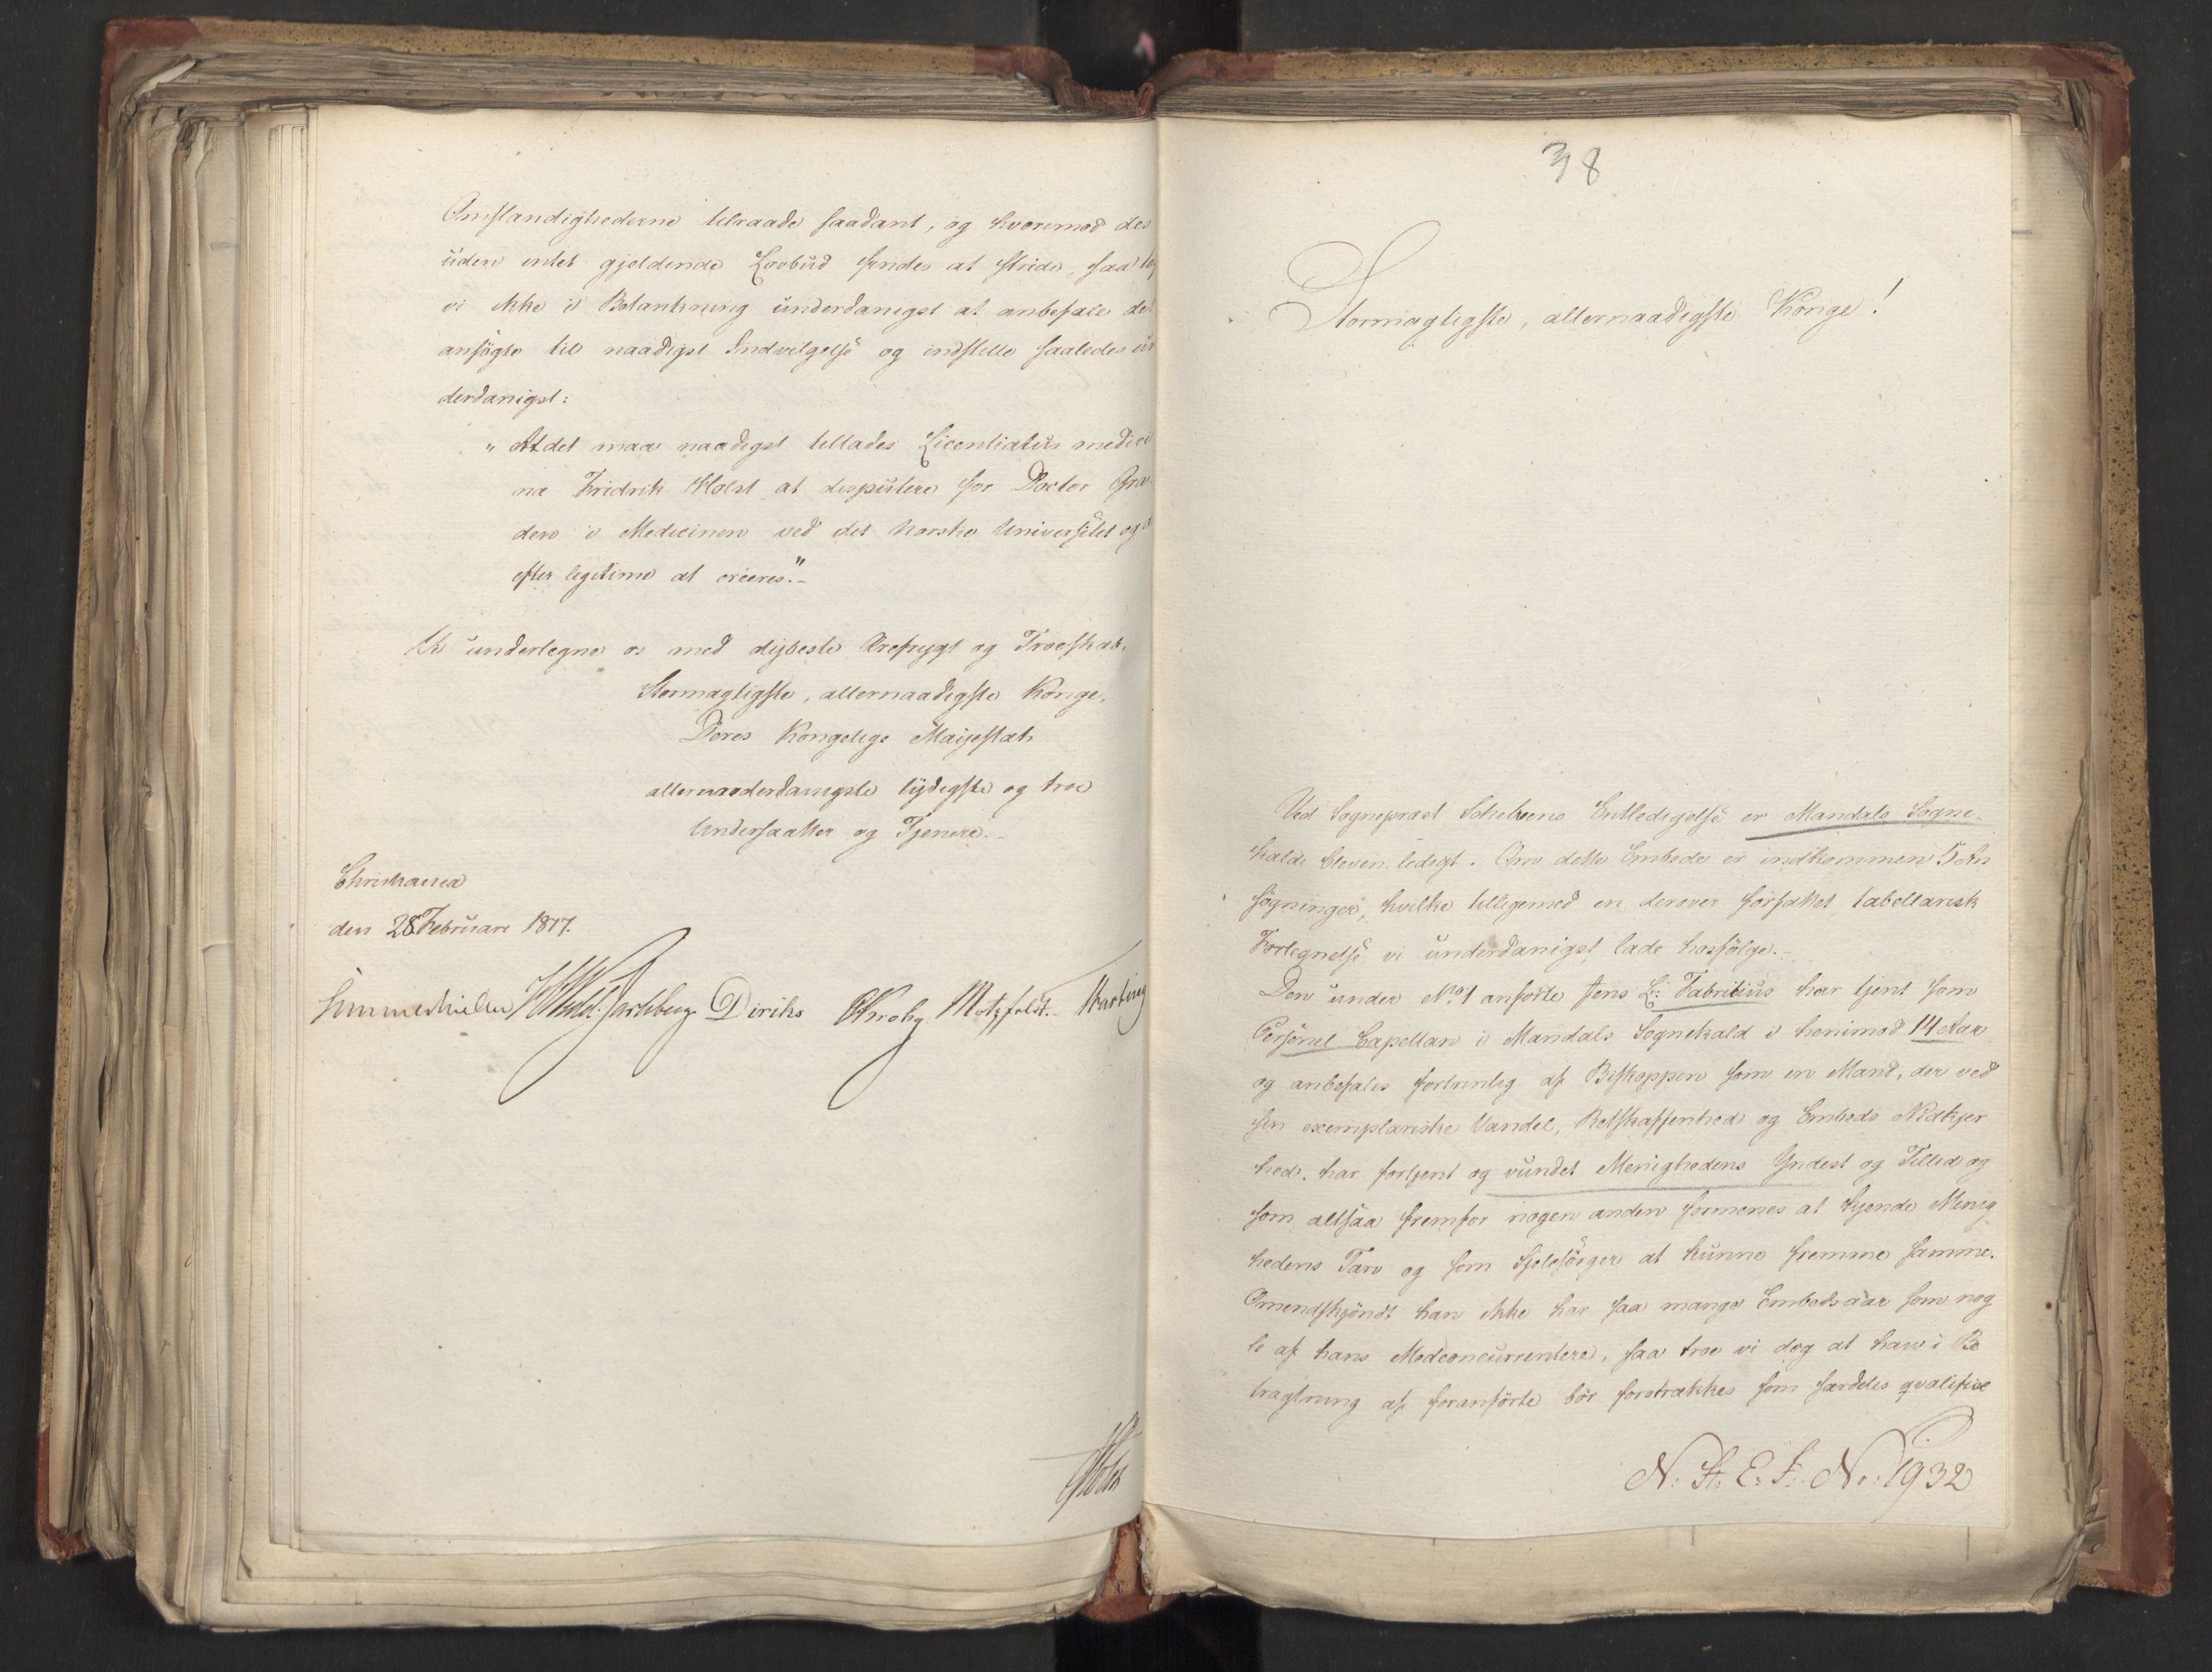 Omstandighederne tilraade saadant, og hvorimod des
uden intet gjeldende Lovbud findes at stride, saa
vi ikke i Betænkning underdanigst at anbefale det
ansøgte til naadigst Indvilgelse og indstille saaledes un
derdanigst:
„At det maa naadigst tillades Licentiatus medici
næ Fridrik Holst at disputere for Doctor Gra
den i Medicinen ved det Norske Universitet og
efter legitime at creeres."-
Vi underlegne os med dybeste Ærefrygt og Troeskab,
Stormægtigste, allernaadigste Konge,
Deres Kongelige Maijestæts
allerunderdanigste lydigste og troe
Undersaatter og Tjenere.-
Christiania
den 28 Februari 1817.
Sommerhielm Diriks Krohg Motzfeldt.
Holst
38
Stormægtigste, allernaadigste Konge!
Ved Sognepræst Entledigelse er Mandals Sogne-
kald bleven ledigt. Om dette Embede er indkommen 5 An
søgninger, hvilke tilligemed en derover forfattet tabellarisk
Fortegnelse vi underdanigst lade hosfølge.-
Den under No 1 anførte Jens L: Fabritius har tjent som
Personel Capellan i Mandals Sognekald i henimod 14 Aar
og anbefales fortrinlig af Biskoppen som en Mand, der ved
sin exemplariske Vandel, Retskaffenhed og Embeds Nidkjer
hed, har fortjent og vundet Menighedens Yndest og Tillid og
som altsaa fremfor nogen anden formenes at kjende Menig
hedens Tarv og som Sjelesørger at kunne fremme samme.
Omendskjöndt han ikke har saa mange Embedsaar som nog
le af hans Medconcurrentere, saa troe vi dog at han i Be
tragtning af foranførte bör foretrækkes som særdeles qvalifice
N. St. E. J. No: 1932